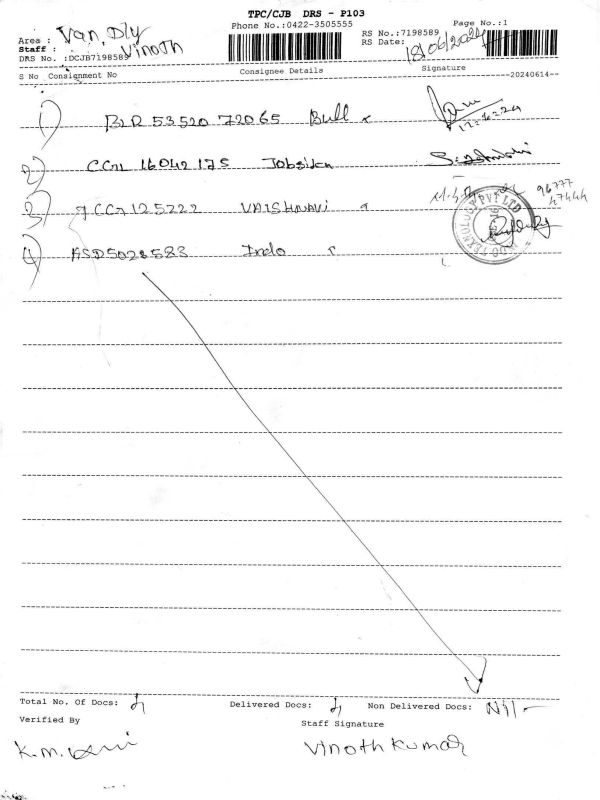 TPC/CJB DRS - P103
Phone No.:0422-3505555
Page No.:1
Area : Van, Dly
RS No.:7198589
Staff : Vinoth
RS Date: 18/06/2024
DRS No. :DCJB7198589
S No Consignment No Consignee Details Signature
20240614
1) BLR 53520 72065 Bull
2) CCN 16042175
3) 125222 VAISHNAVI
96777
47444
4) ASD5028583 Indo
PVT LTD
Total No. Of Docs: 4 Delivered Docs: 4 Non Delivered Docs: Nil -
Verified By Staff Signature
K.M. Vinoth Kumar